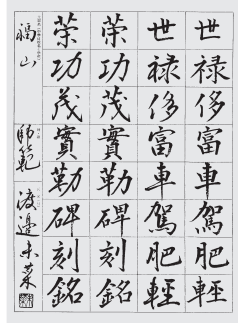 世禄侈富車駕肥輕
世禄侈富車駕肥輕
榮功茂實勒碑刻銘
榮功茂實勒碑刻銘
福山
渡邉未菜